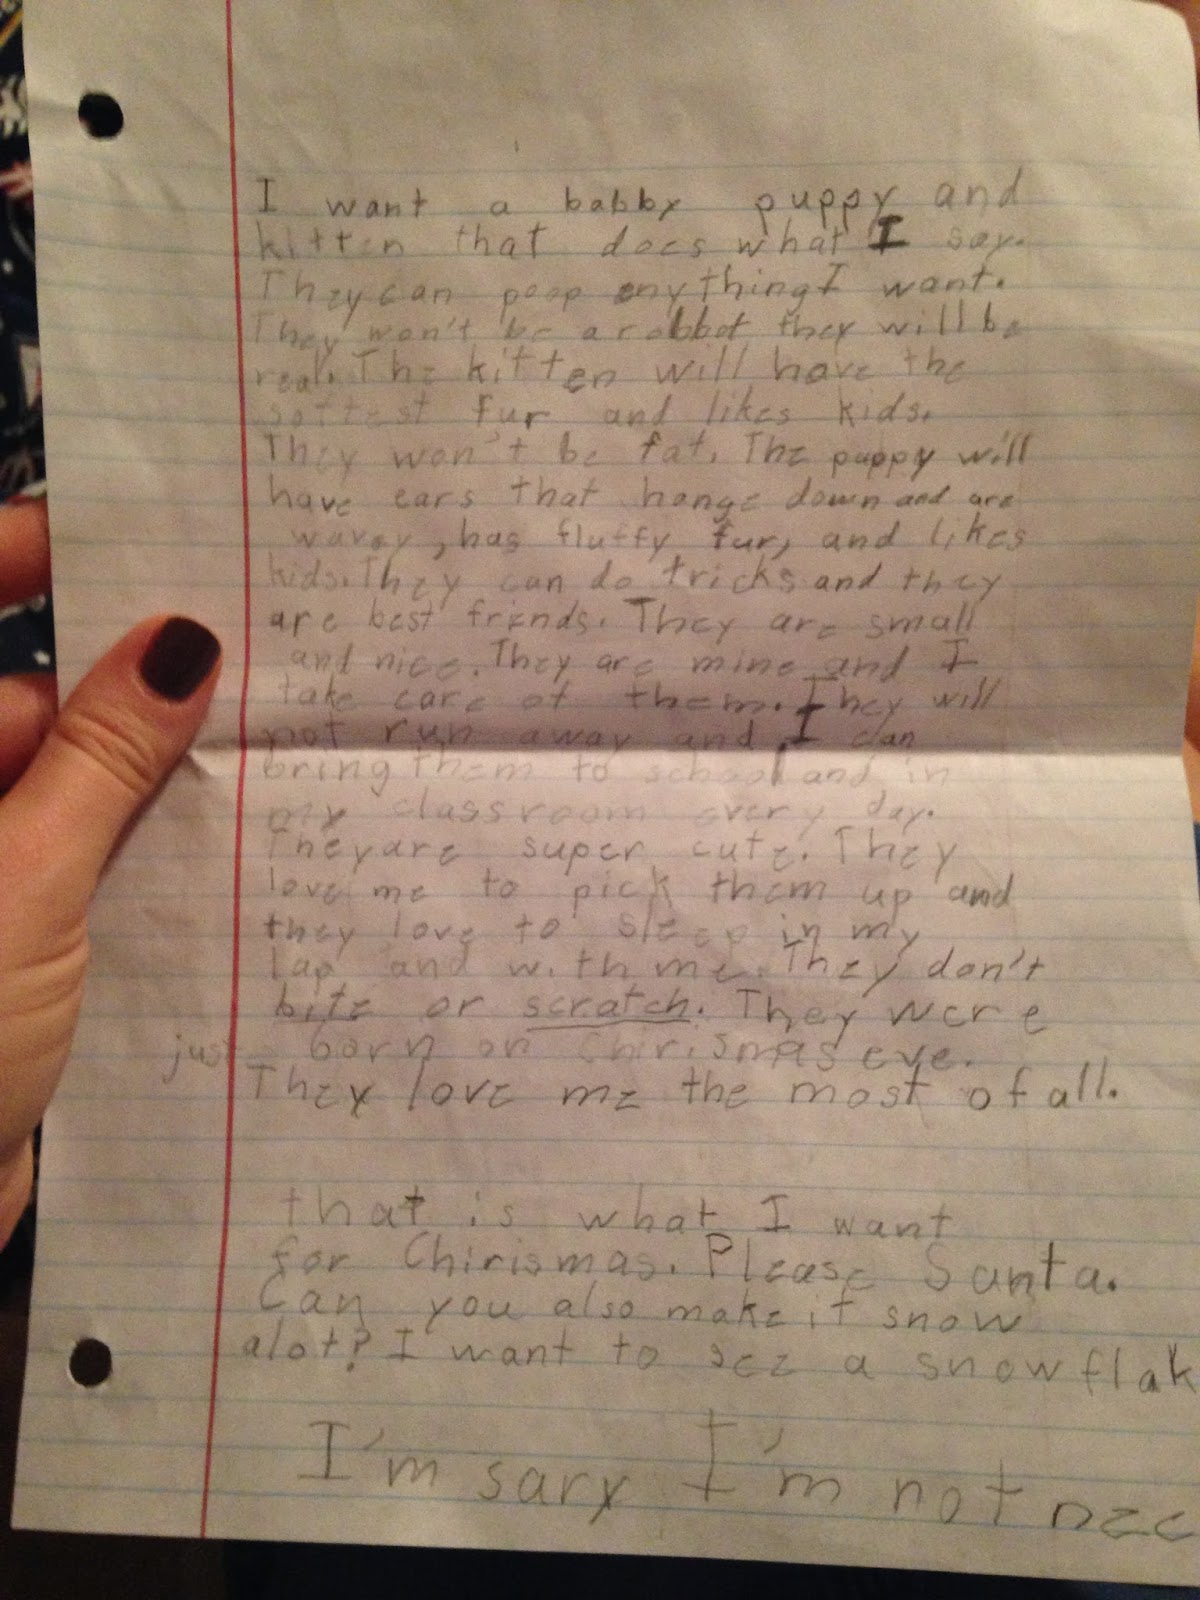 I want a babby puppy and
kitten that does what I say.
They can poop enything I want.
They won't be a robbot they will be
real. The kitten will have the
softest fur and likes kids.
They won't be fat. The puppy will
have ears that hange down and are
wavey, has fluffy fur, and likes
kids. They can do tricks and they
are best friends. They are small
and nice. They are mine and I
take care of them. They will
not run away and I can
bring them to school and in
my classroom every day.
They are super cute. They
love me to pick them up and
they love to sleep in my
lap and with me. They don't
bite or scratch. They were
just born on Chirismas eve.
They love me the most of all.
that is what I want
for Chirismas. Please Santa.
Can you also make it snow
alot? I want to see a snowflak
I'm sary I'm not